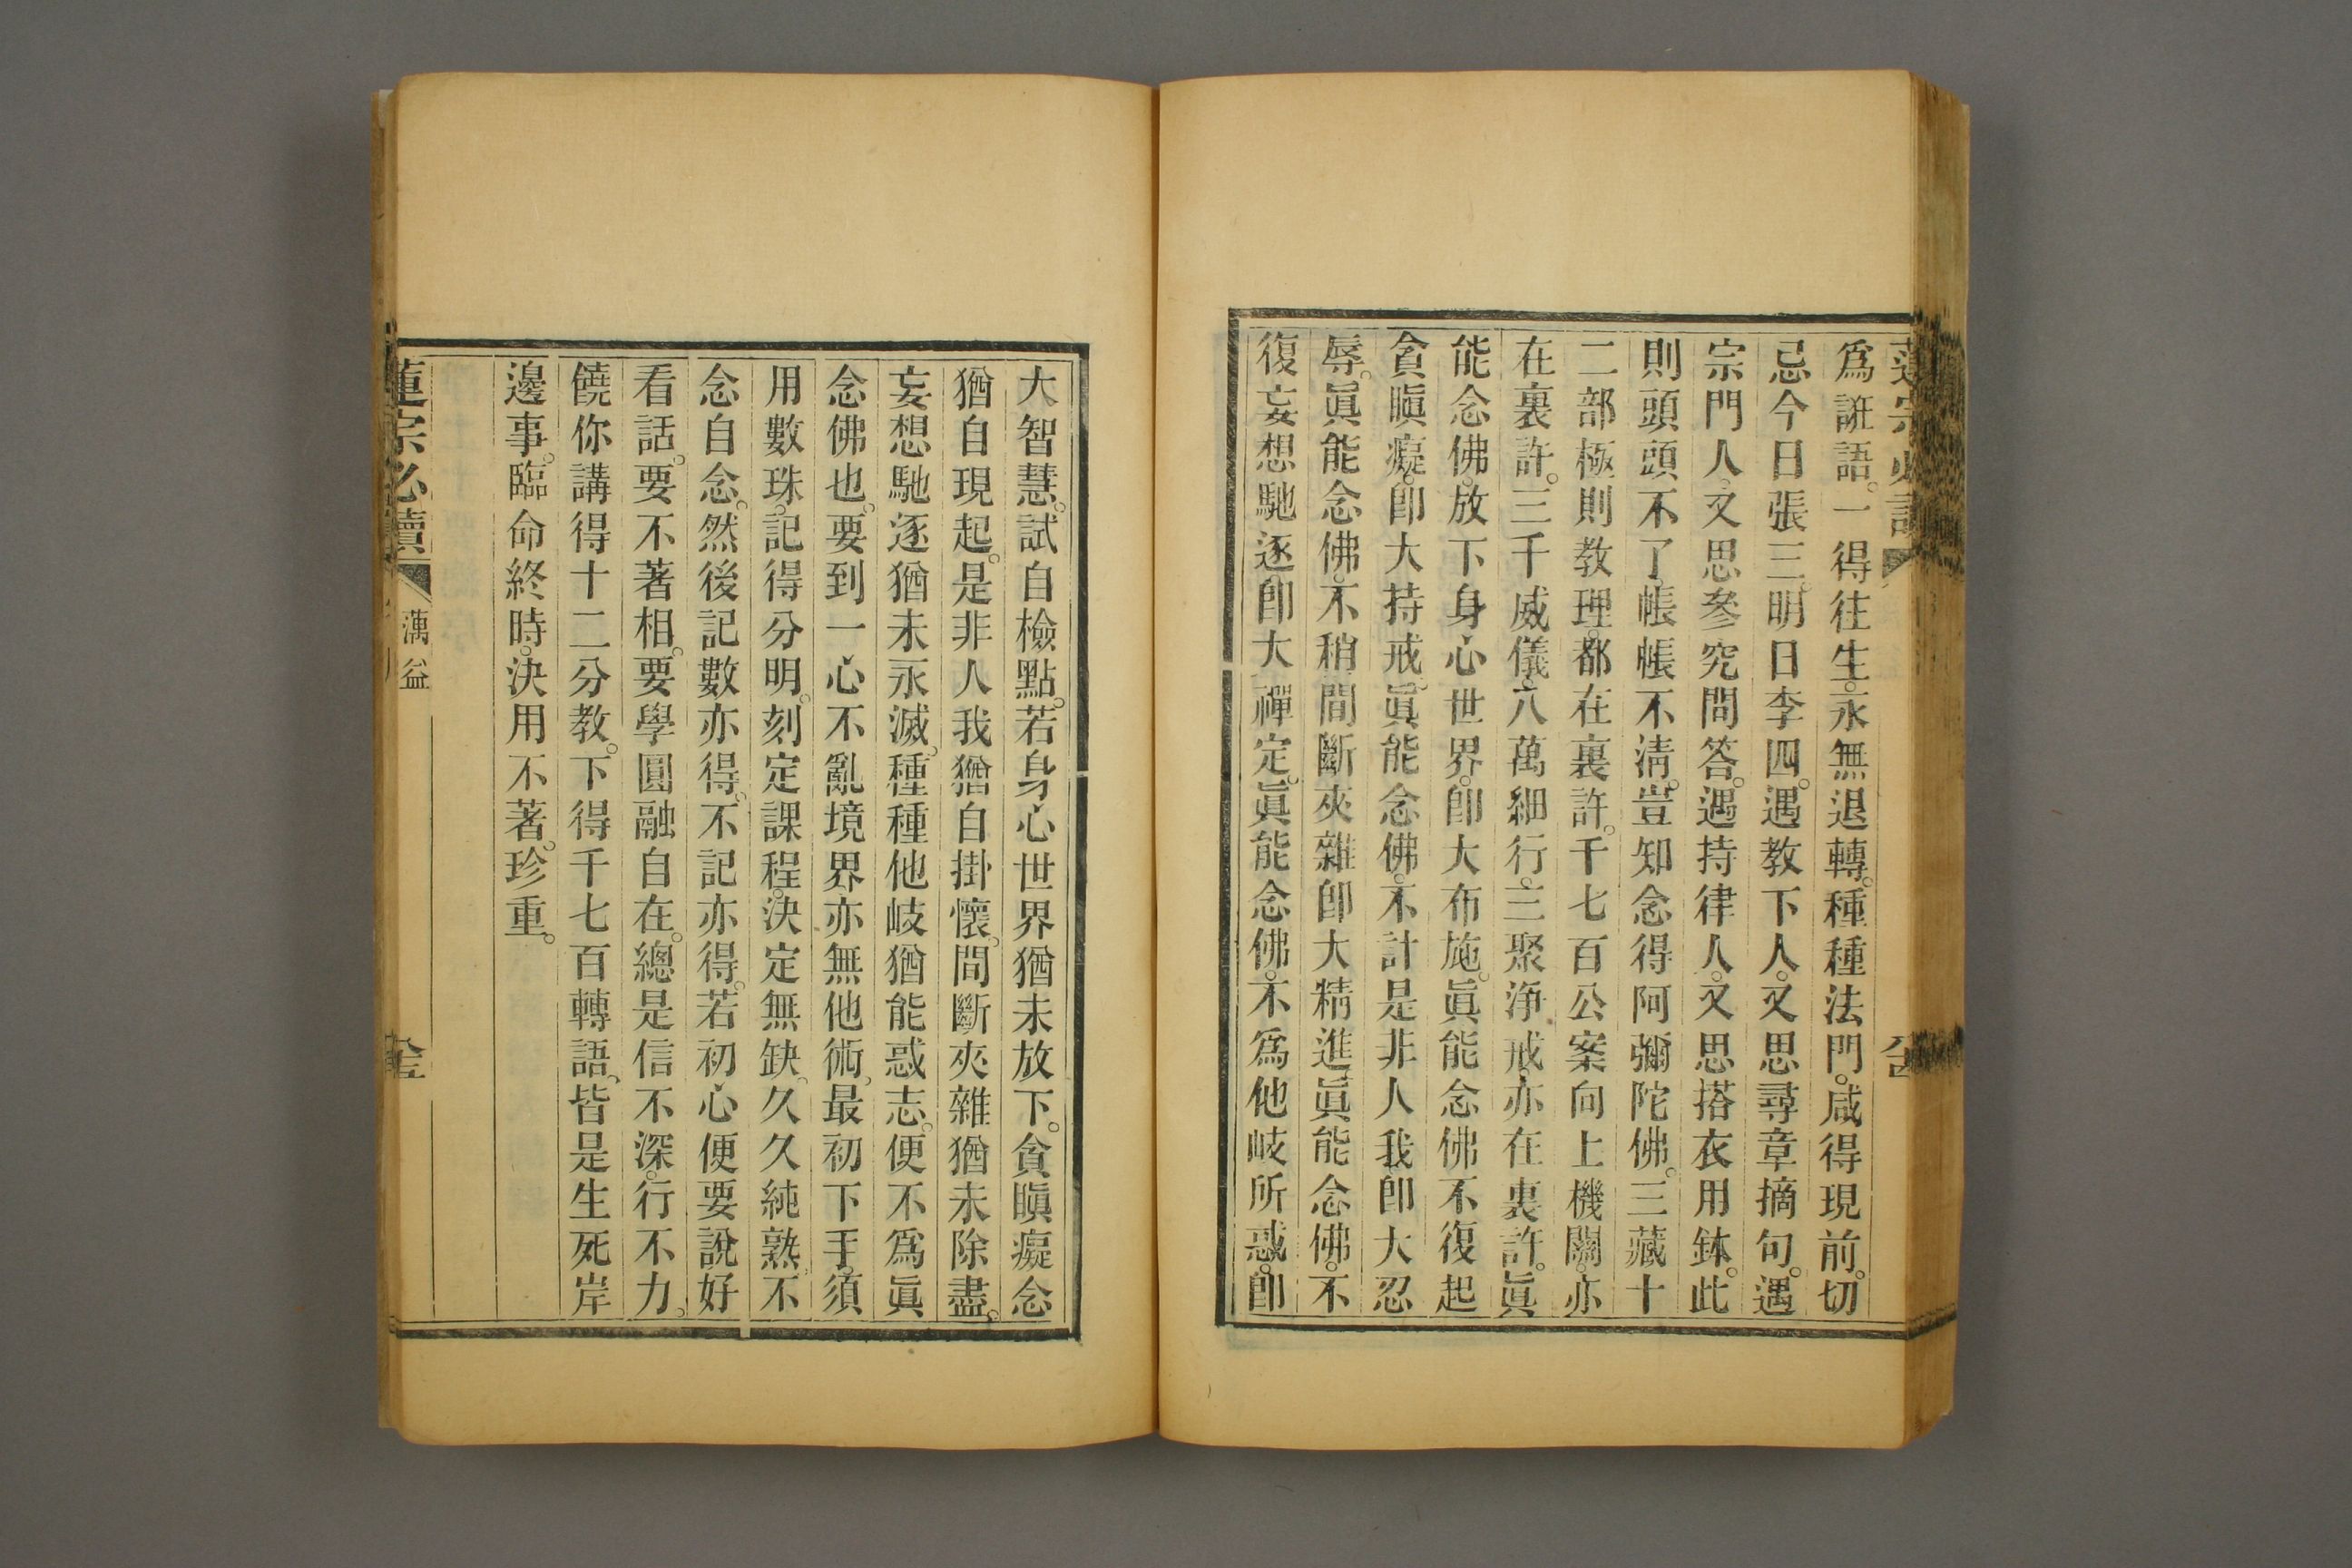 爲誑語。一得往生。永無退轉。種種法門。咸得現前。切
忌今日張三。明日李四。遇教下人。又思尋章摘句。遇
宗門人。又思參究問答。遇持律人。又思搭衣用鉢。此
則頭頭不了。帳帳不淸。豈知念得阿彌陀佛。三藏十
二部極則教理。都在裏許。千七百公案向上機關。亦
在裏許。三千威儀。八萬細行。三聚淨戒。亦在裏許。眞
能念佛。放下身心世界。卽大布施。眞能念佛不復起
貪瞋癡。卽大持戒。眞能念佛。不計是非人我。卽大忍
辱。眞能念佛。不稍間斷夾雜。卽大精進。眞能念佛。不
復妄想馳逐。卽大禪定。眞能念佛。不爲他岐所惑。卽
大智慧。試自檢點。若身心世界猶未放下。貪瞋癡念
猶自現起。是非人我猶自掛懷。間斷夾雜猶未除盡。
妄想馳逐猶未永滅。種種他岐猶能惑志。便不爲眞
念佛也。要到一心不亂境界。亦無他術。最初下手。須
用數珠。記得分明。刻定課程。決定無缺。久久純熟。不
念自念。然後記數亦得。不記亦得。若初心便要說好
看話。要不著相。要學圓融自在。總是信不深。行不力。
饒你講得十二分教。下得千七百轉語。皆是生死岸
邊事。臨命終時。決用不著。珍重。
蓮宗必讀 蕅益